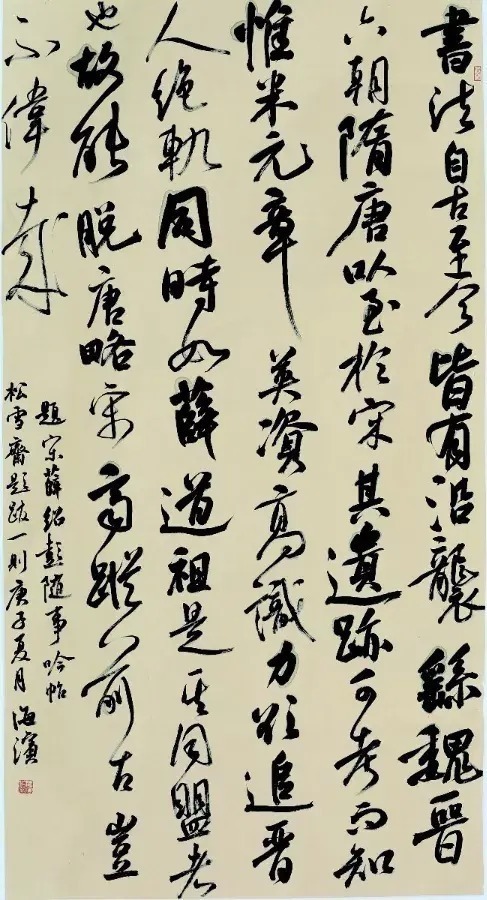 書法自古至今皆有沿襲繇魏晉
六朝隋唐以至於宋其遺跡可考而知
惟米元章英資高識力欲追晉
人絶軌同時如薛道祖是其同盟者
也故能脫唐略宋齊蹤前古豈
不偉哉
題宋薛紹彭隨事吟帖
松雪齋題跋一則庚子夏月海濱